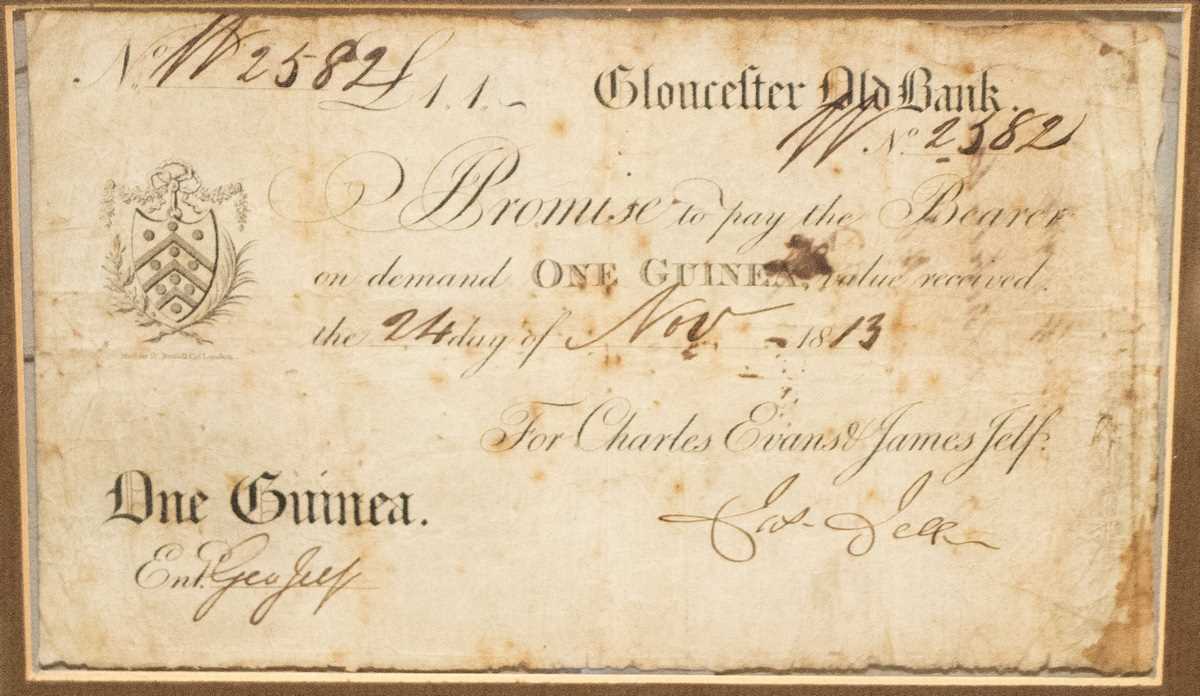 No. W2582 £1.1.-
Glouceſter Old Bank.
W No. 2582
I Promise to pay the Bearer
on demand ONE GUINEA, value received.
the 24 day of Nov - 1813
For Charles Evans & James Jelf.
One Guinea.
Jas. Jelf
Entd. Geo Jelf